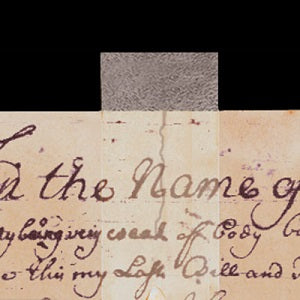 the Name of
being very weak of body
this my Last Will and